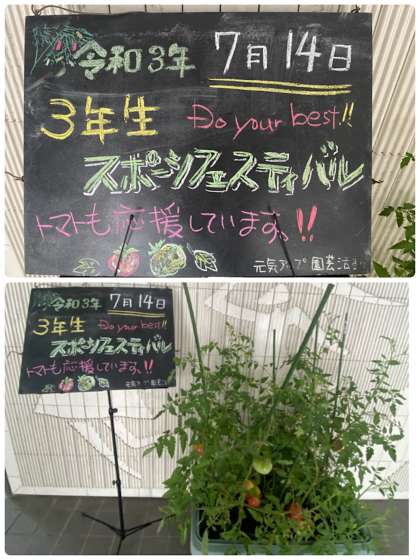 令和3年 7月14日
3年生 Do your best!!
スポーツフェスティバル
トマトも応援しています。!!
元気アップ 園芸活
令和3年 7月14日
3年生 Do your best!!
スポーツフェスティバル
トマトも応援しています。!!
元気アップ 園芸